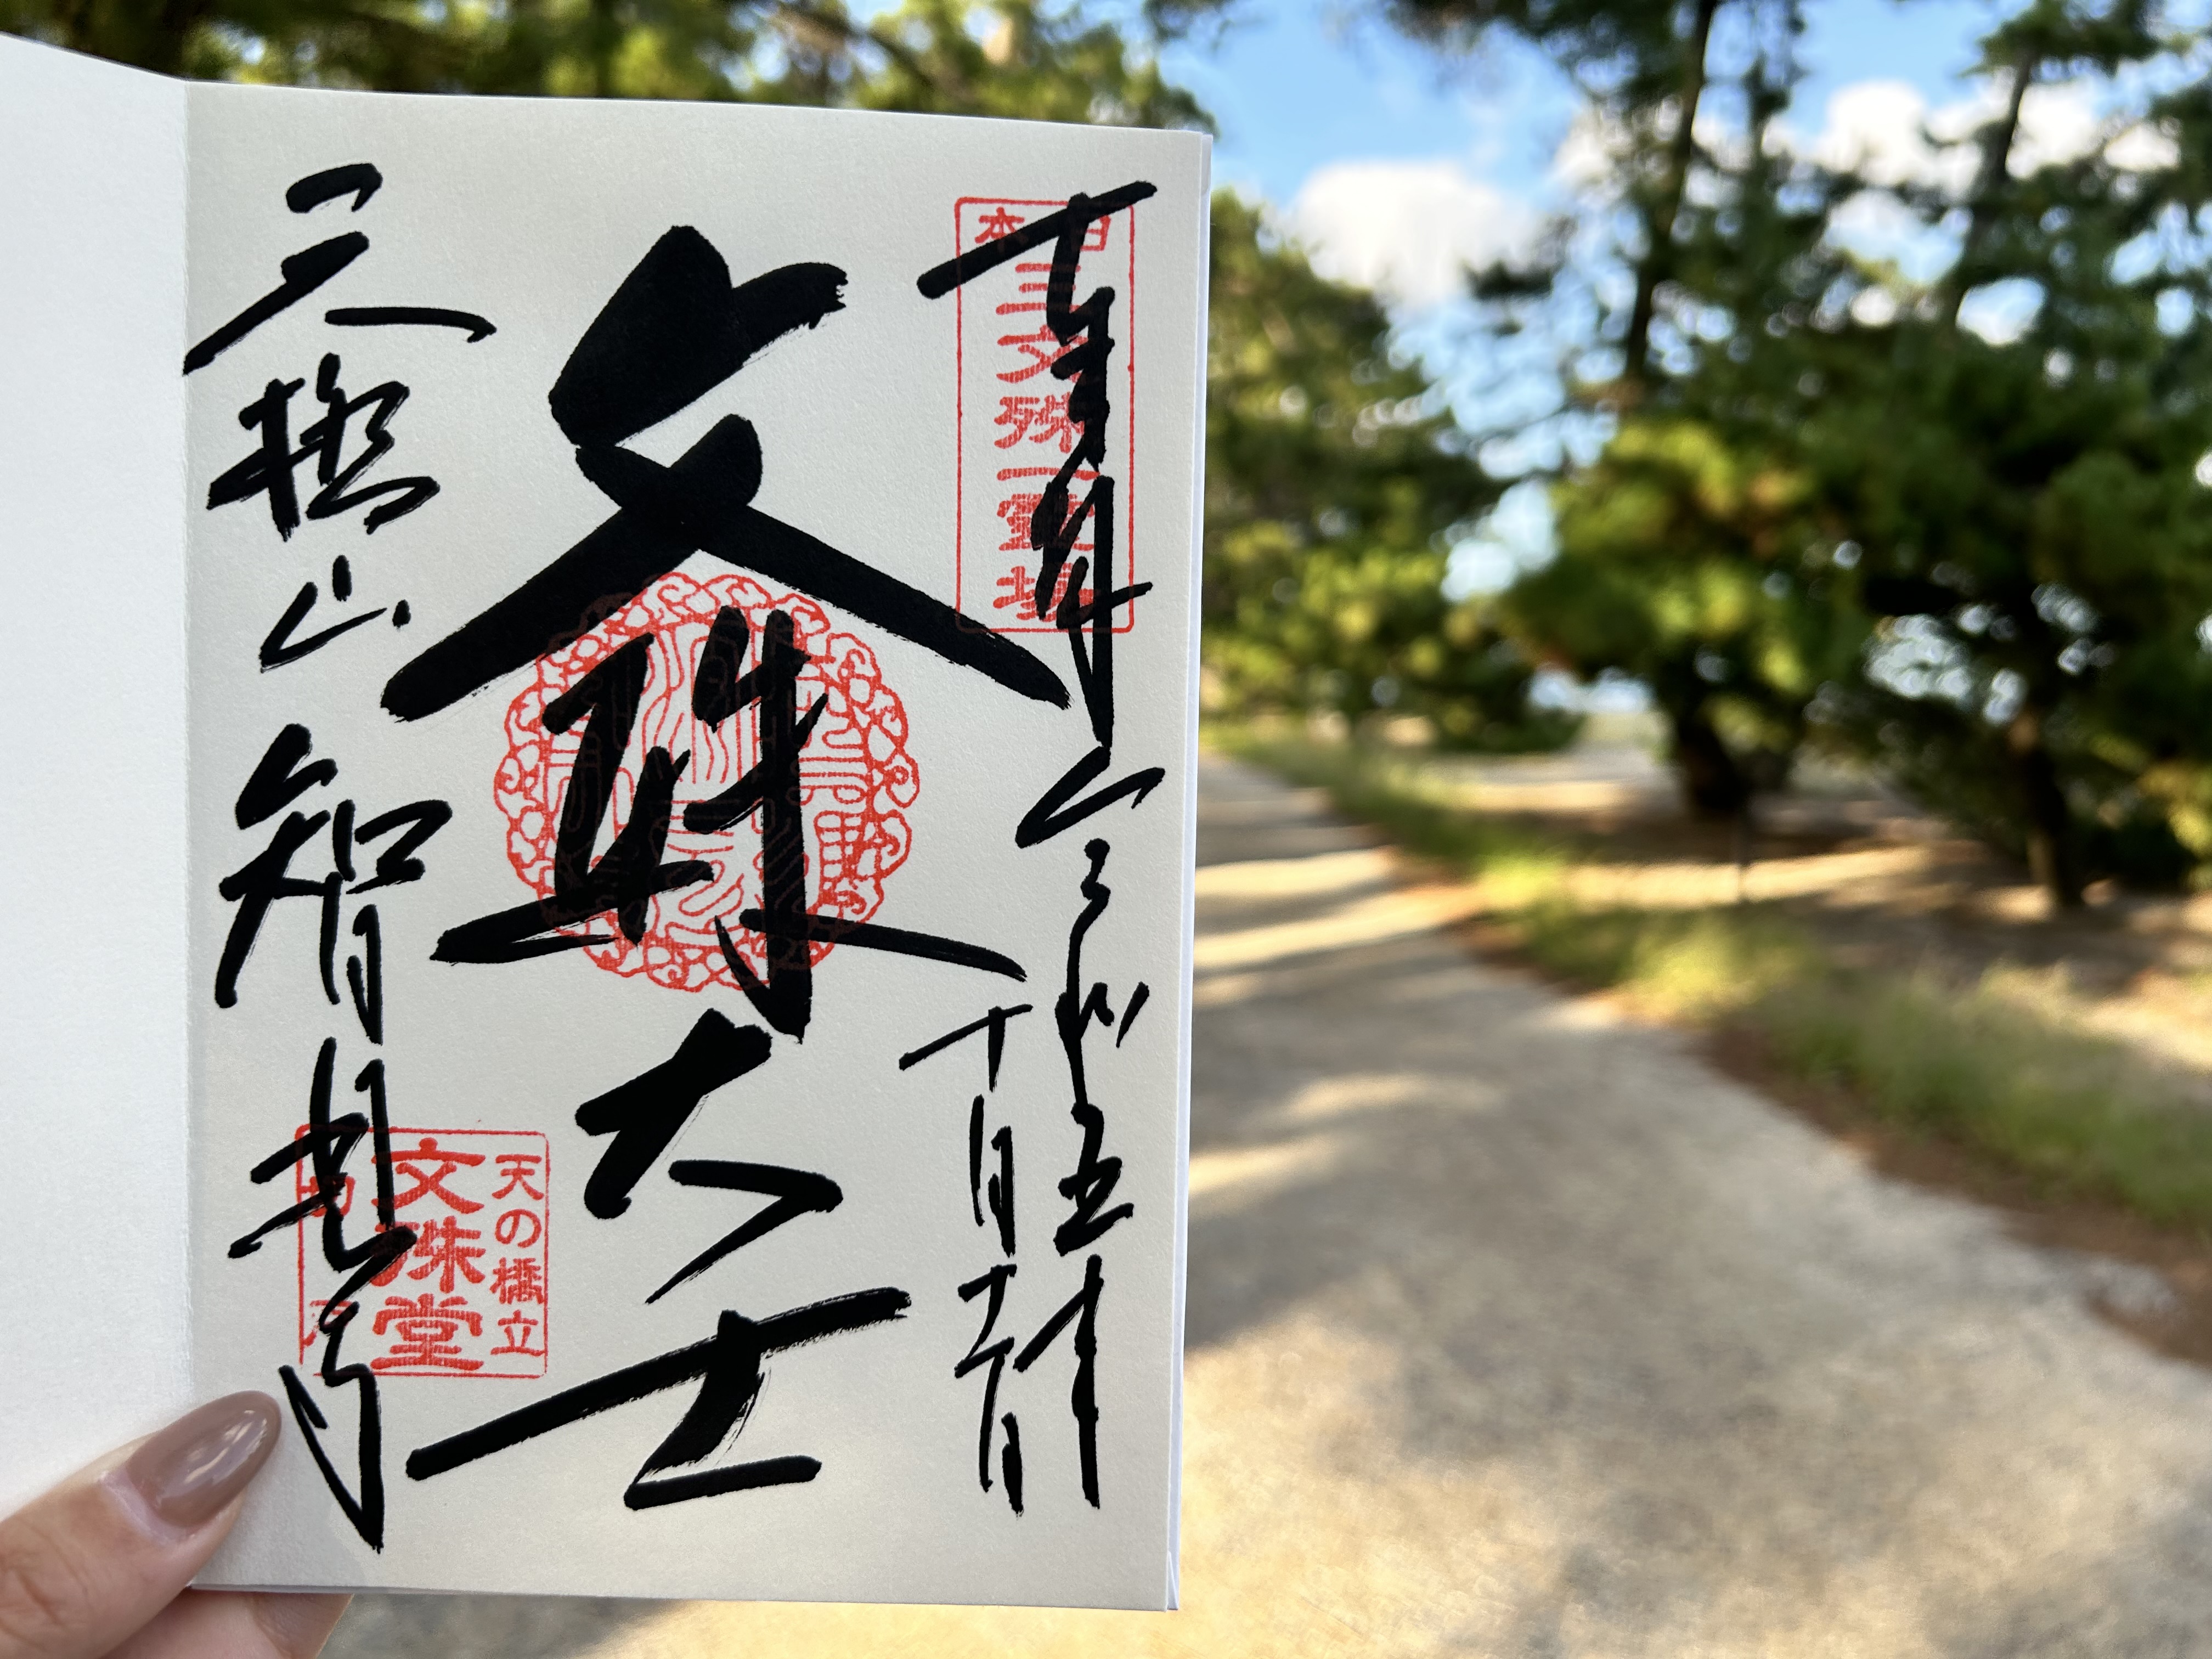 奉拝
令和五年
十月
日本三文殊一霊場
文殊大士
天橋山智恩寺
天の橋立
文殊堂